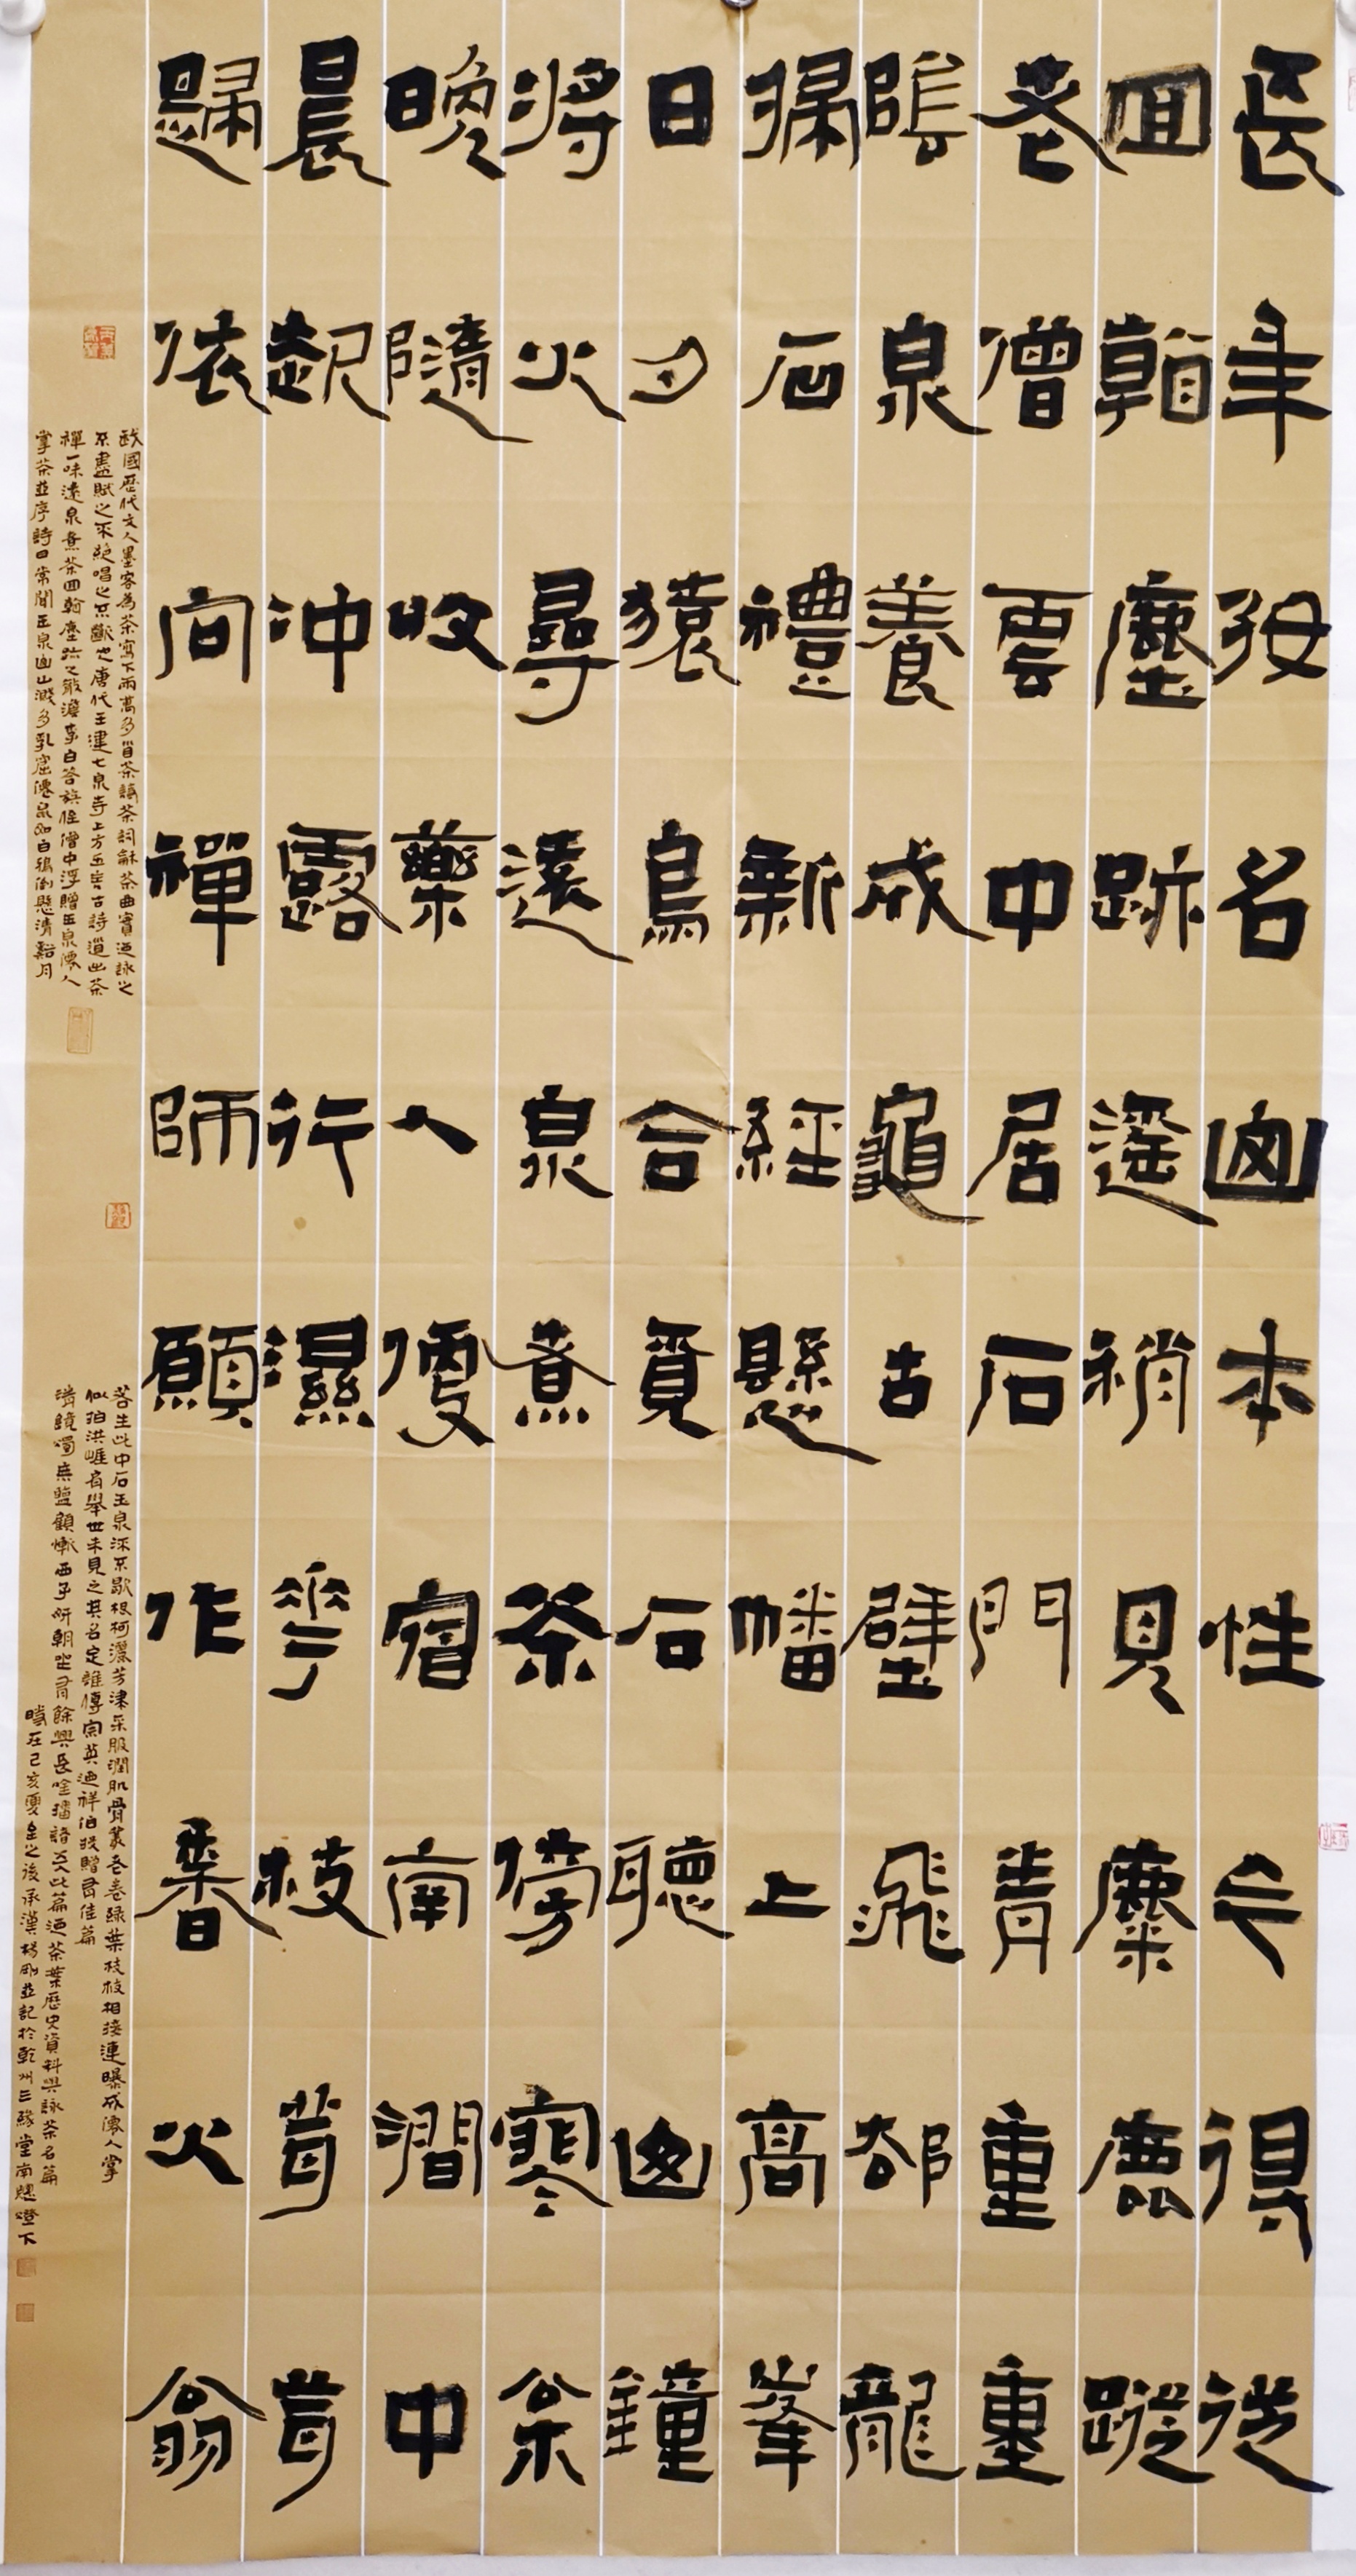 長年好名山本性今得從
回看塵跡遙稍見麋鹿蹤
老僧雲中居石門青重重
陰泉養成龜古壁飛却龍
掃石禮新經懸幡上高峯
日夕猿鳥合覓石聽山鐘
將火尋遠泉煮茶傍寒松
晚隨收藥人便宿南澗中
晨起沖露行濕花枝茸茸
歸依向禪師願作香火翁
我國歷代文人墨客為茶寫下兩萬多首茶詩茶詞龢茶曲實迺詠之
不盡賦之不絕唱之不斷也唐代王建七泉寺上方五言古詩道出茶
禪一味遠泉煮茶回看塵跡之濃李白答族侄僧中浮贈玉泉僊人
掌茶並序詩曰常聞玉泉山山溪多乳窟僊鼠如白鴉倒懸清谿月
茗生此中石玉泉流不歇根柯灑芳津采服潤肌骨叢老卷綠葉枝枝相接連曝成僊人掌
似拍洪崖肩舉世未見之其名定誰傳宗英迺禪伯投贈有佳篇
清鏡燭無鹽顧慚西子妍朝坐有餘興長唫播諸天此篇迺茶葉歷史資料與詠茶名篇
時在己亥夏至之後承漢楊剛並記於乾州三緣堂南牕燈下